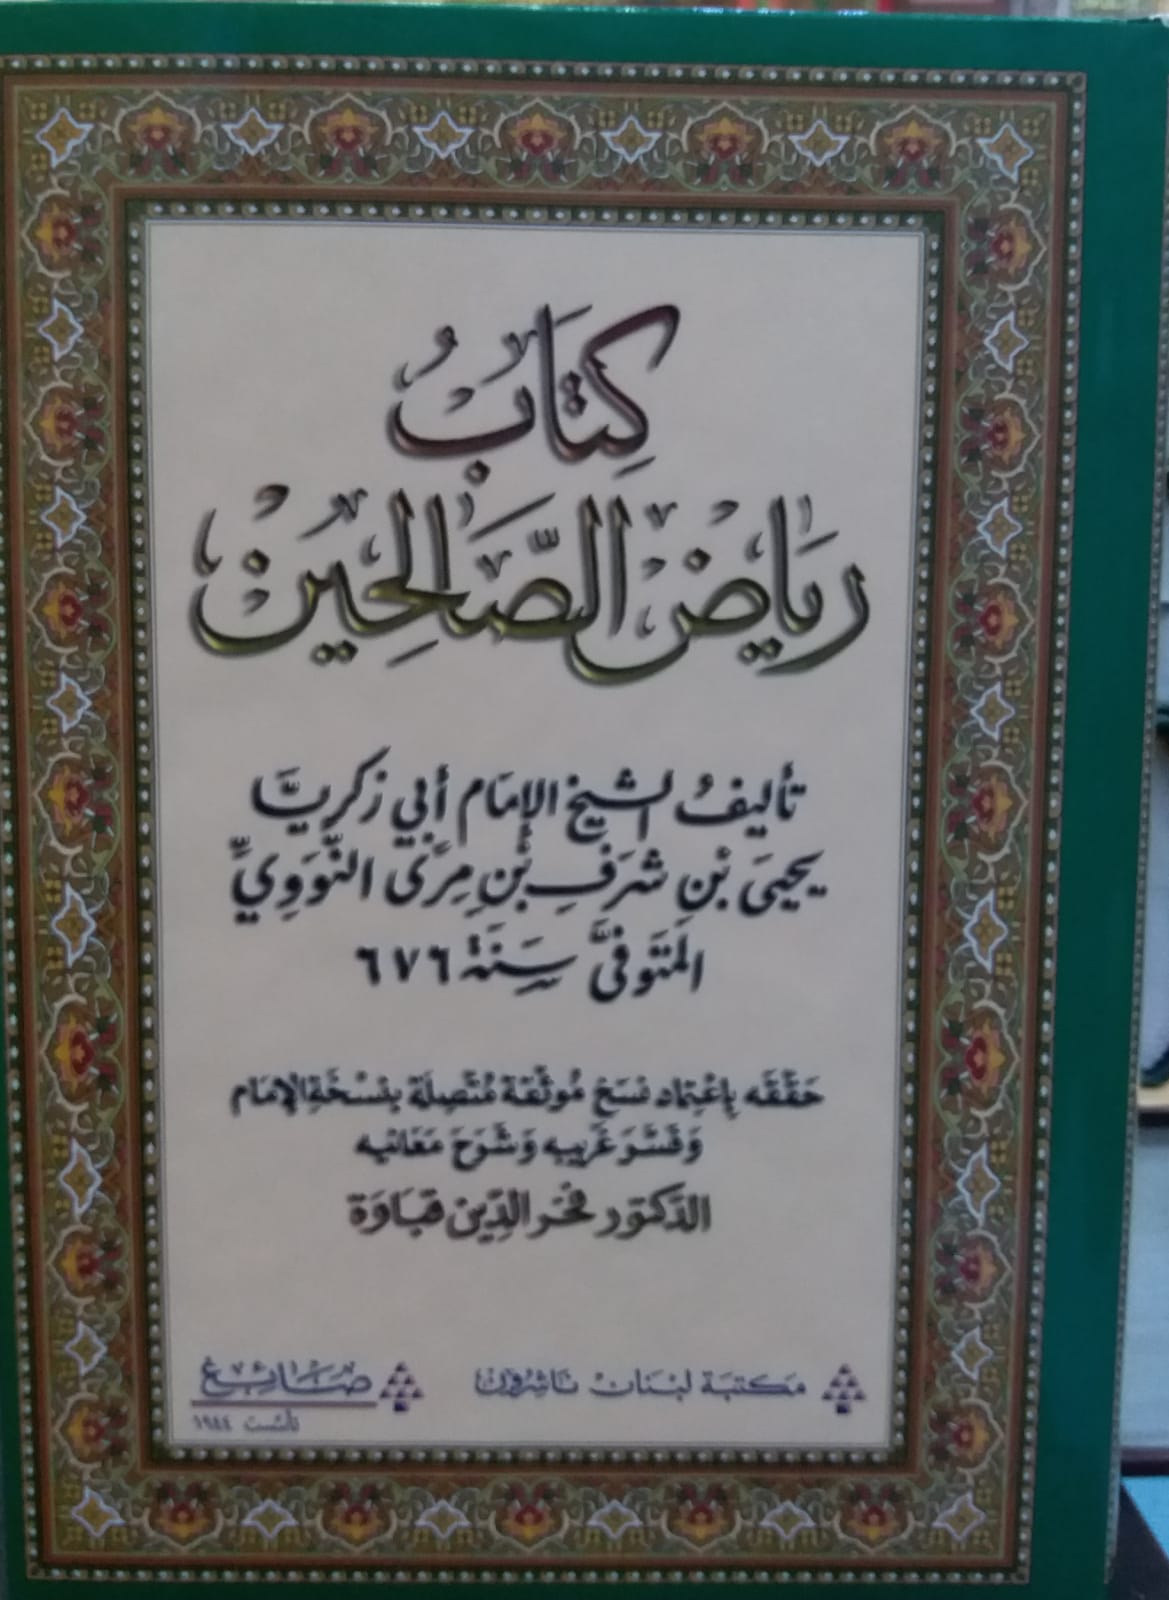 كِتَابُ
رِيَاضُ الصَّالِحِينَ
تأليفُ الشيخ الإمَام أبي زكريَّا
يحيىَ بْن شَرَفِ بْنِ مِرَى النَّوَوِيِّ
المتَوفىَّ سَنَة ٦٧٦
حَقَّقَه بِاعْتِمَاد نسَخ مُوثَّقة مُتَّصِلَة بِنسْخَةِ الإمَام
وَفَسَّرَ غَريبه وَشَرَحَ مَعَانيه
الدّكتور فخر الدِّين قبَاوَة
مكتبة لبنان ناشرون
صَائِغ
تأسّست ١٩٤٤